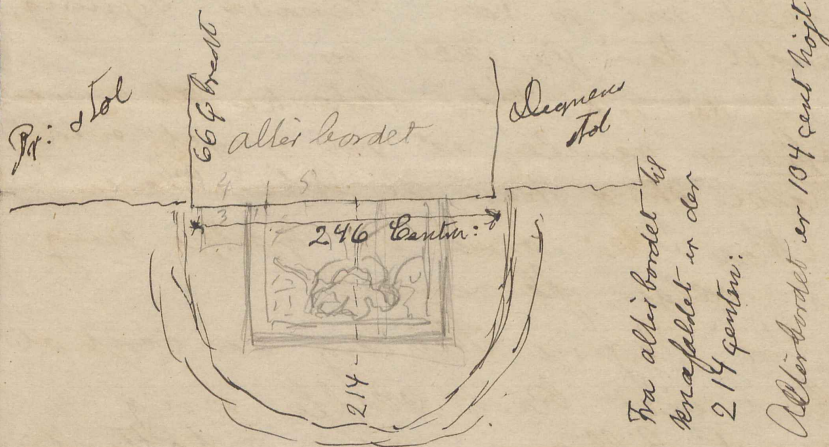 Pr: stol
66 ç bredt
alterbordet
Degnens
stol
4 5
3
246 Centm:
214
Fra alterbordet til
knæfaldet er der
214 centm:
Alterbordet er 104 cent højt